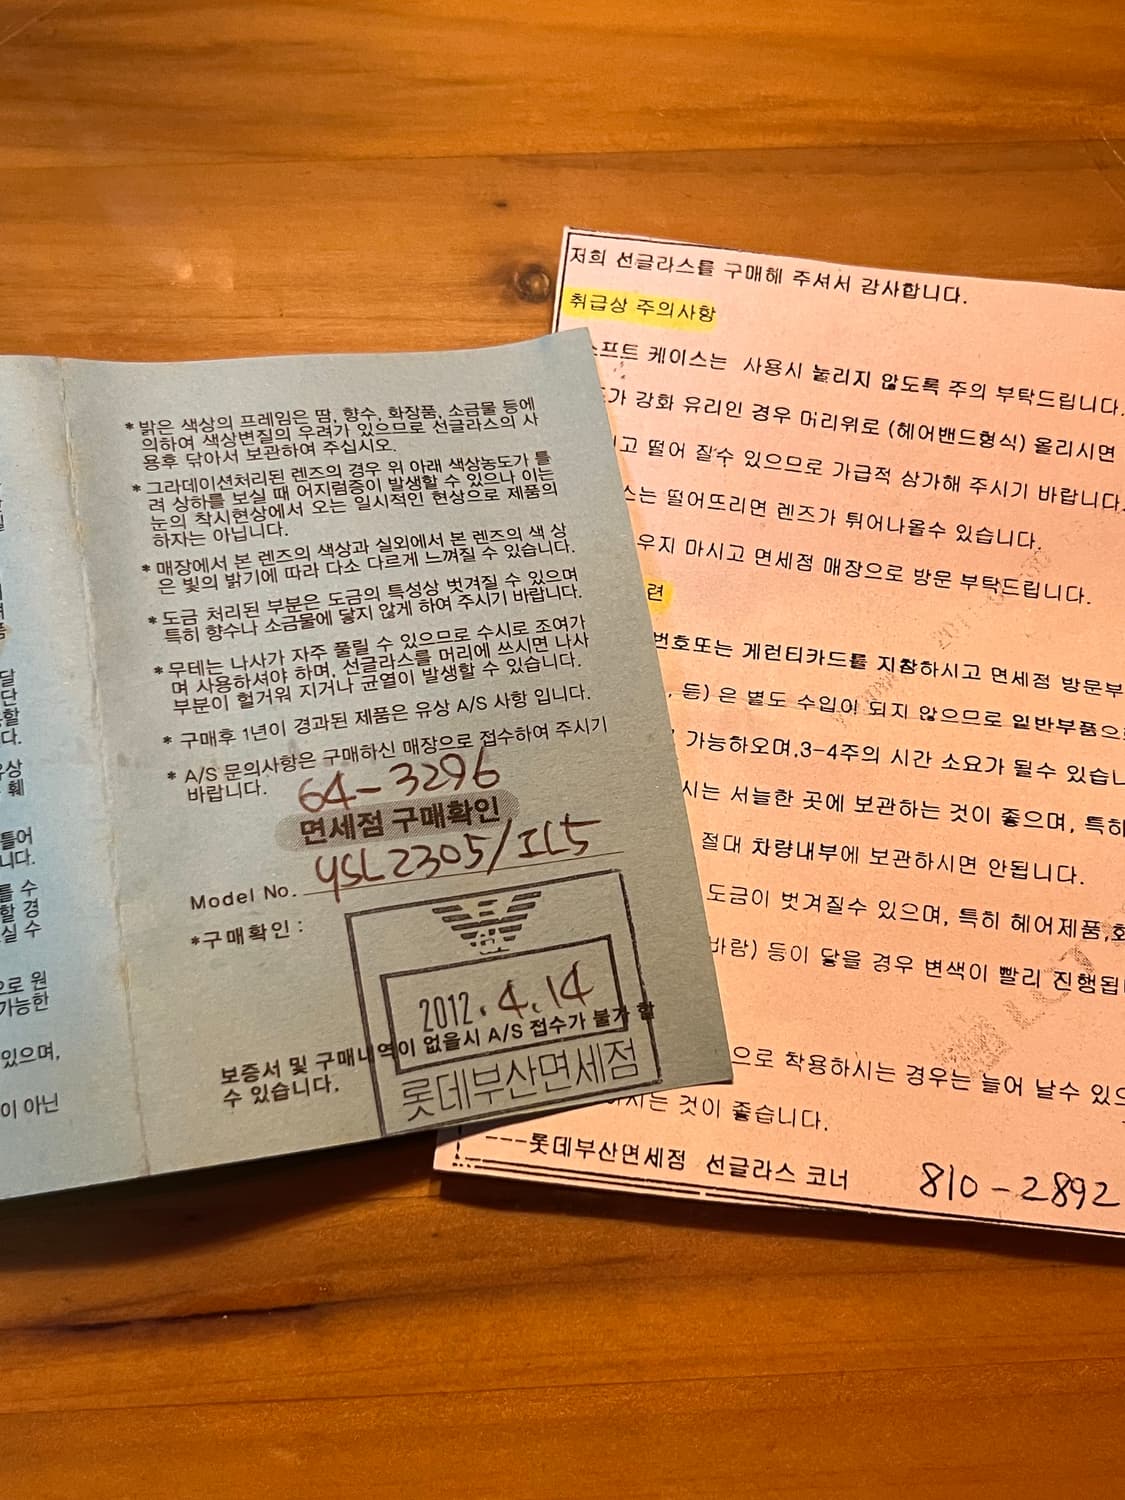 * 밝은 색상의 프레임은 땀, 향수, 화장품, 소금물 등에
의하여 색상변질의 우려가 있으므로 선글라스의 사
용후 닦아서 보관하여 주십시오.
* 그라데이션처리된 렌즈의 경우 위 아래 색상농도가 틀
려 상하를 보실 때 어지럼증이 발생할 수 있으나 이는
눈의 착시현상에서 오는 일시적인 현상으로 제품의
하자는 아닙니다.
* 매장에서 본 렌즈의 색상과 실외에서 본 렌즈의 색 상
은 빛의 밝기에 따라 다소 다르게 느껴질 수 있습니다.
* 도금 처리된 부분은 도금의 특성상 벗겨질 수 있으며
특히 향수나 소금물에 닿지 않게 하여 주시기 바랍니다.
* 무테는 나사가 자주 풀릴 수 있으므로 수시로 조여가
며 사용하셔야 하며, 선글라스를 머리에 쓰시면 나사
부분이 헐거워 지거나 균열이 발생할 수 있습니다.
* 구매후 1년이 경과된 제품은 유상 A/S 사항 입니다.
* A/S 문의사항은 구매하신 매장으로 접수하여 주시기
바랍니다.
64-3296
면세점 구매확인
Model No. YSL2305/IL5
*구매확인 :
2012. 4. 14
보증서 및 구매내역이 없을시 A/S 접수가 불가 할
수 있습니다.
롯데부산면세점
달
단
다.
유상
훼
틀어
니다.
를 수
할 경
실 수
으로 원
가능한
있으며,
이 아닌
저희 선글라스를 구매해 주셔서 감사합니다.
취급상 주의사항
소프트 케이스는 사용시 눌리지 않도록 주의 부탁드립니다.
가 강화 유리인 경우 머리위로 (헤어밴드형식) 올리시면
고 떨어 질수 있으므로 가급적 삼가해 주시기 바랍니다.
스는 떨어뜨리면 렌즈가 튀어나올수 있습니다.
우지 마시고 면세점 매장으로 방문 부탁드립니다.
련
번호또는 게런티카드를 지참하시고 면세점 방문부
, 등) 은 별도 수입이 되지 않으므로 일반부품으
가능하오며,3-4주의 시간 소요가 될수 있습니
시는 서늘한 곳에 보관하는 것이 좋으며, 특히
절대 차량내부에 보관하시면 안됩니다.
도금이 벗겨질수 있으며, 특히 헤어제품,화
바람) 등이 닿을 경우 변색이 빨리 진행됩
으로 착용하시는 경우는 늘어 날수 있으
하시는 것이 좋습니다.
---롯데부산면세점 선글라스 코너 810-2892